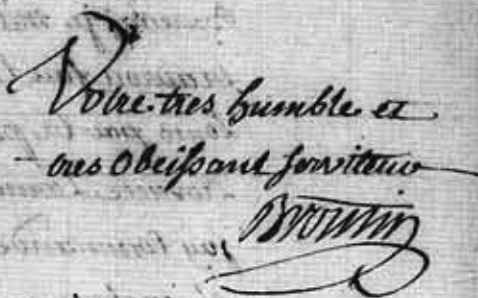 Votre tres humble et
tres obeissant serviteur
Broutin